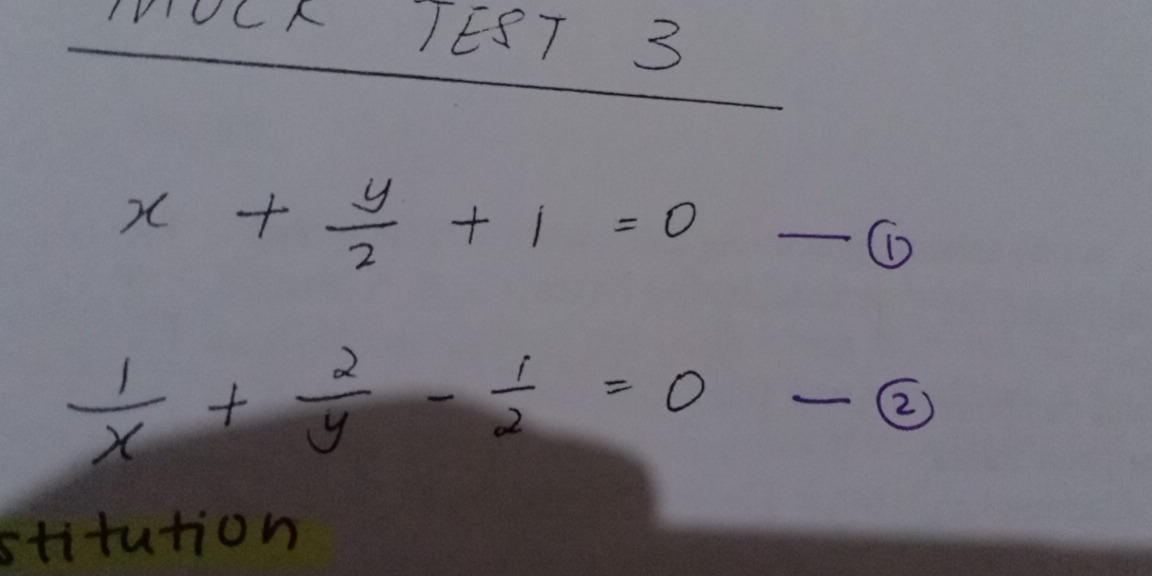 MOCK TEST 3
x + y/2 + 1 = 0 — ①
1/x + 2/y - 1/2 = 0 — ②
stitution